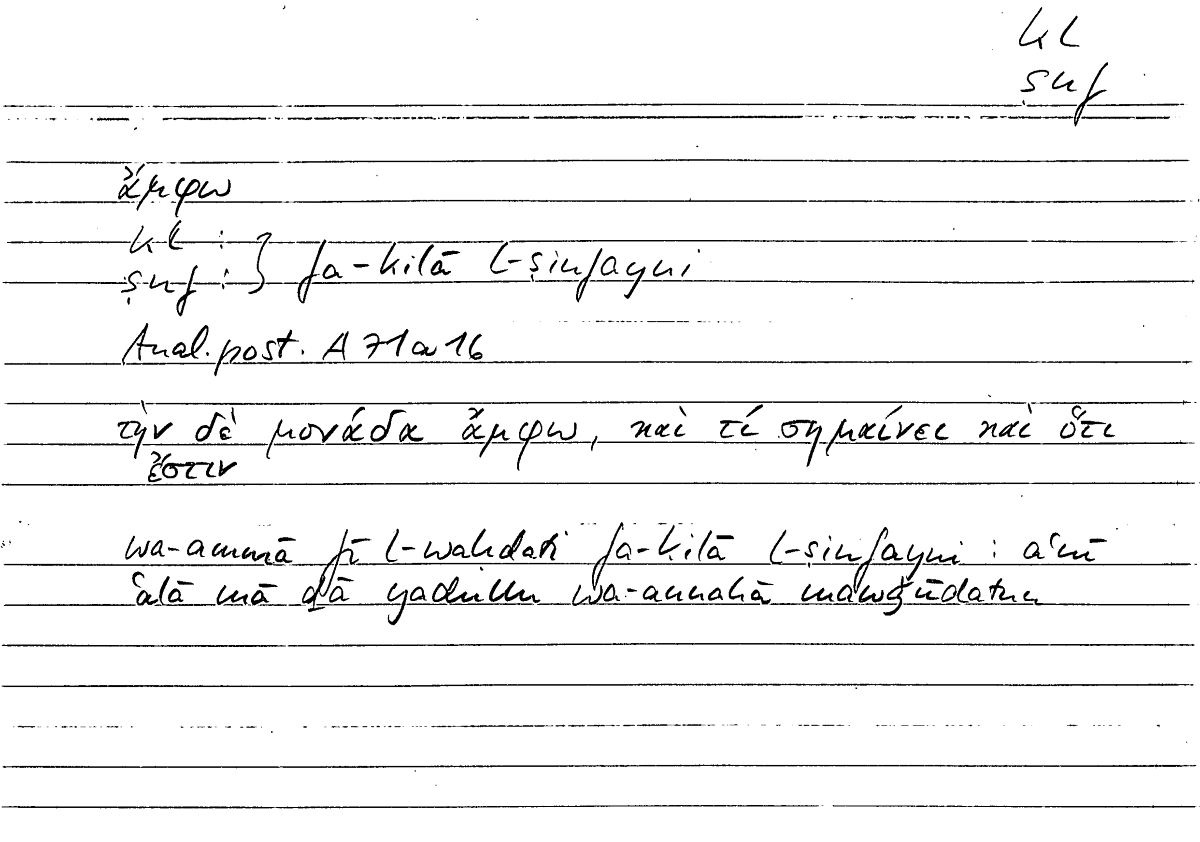 kl
ṣnf
ἄμφω
kl :
ṣnf : } fa-kilā l-ṣinfayni
Anal. post. A 71a16
τὴν δὲ μονάδα ἄμφω, καὶ τί σημαίνει καὶ ὅτι
ἔστιν
wa-ammā fī l-waḥdati fa-kilā l-ṣinfayni : aʿnī
ʿalā mā ḏā yadullu wa-annahā mawǧūdatun